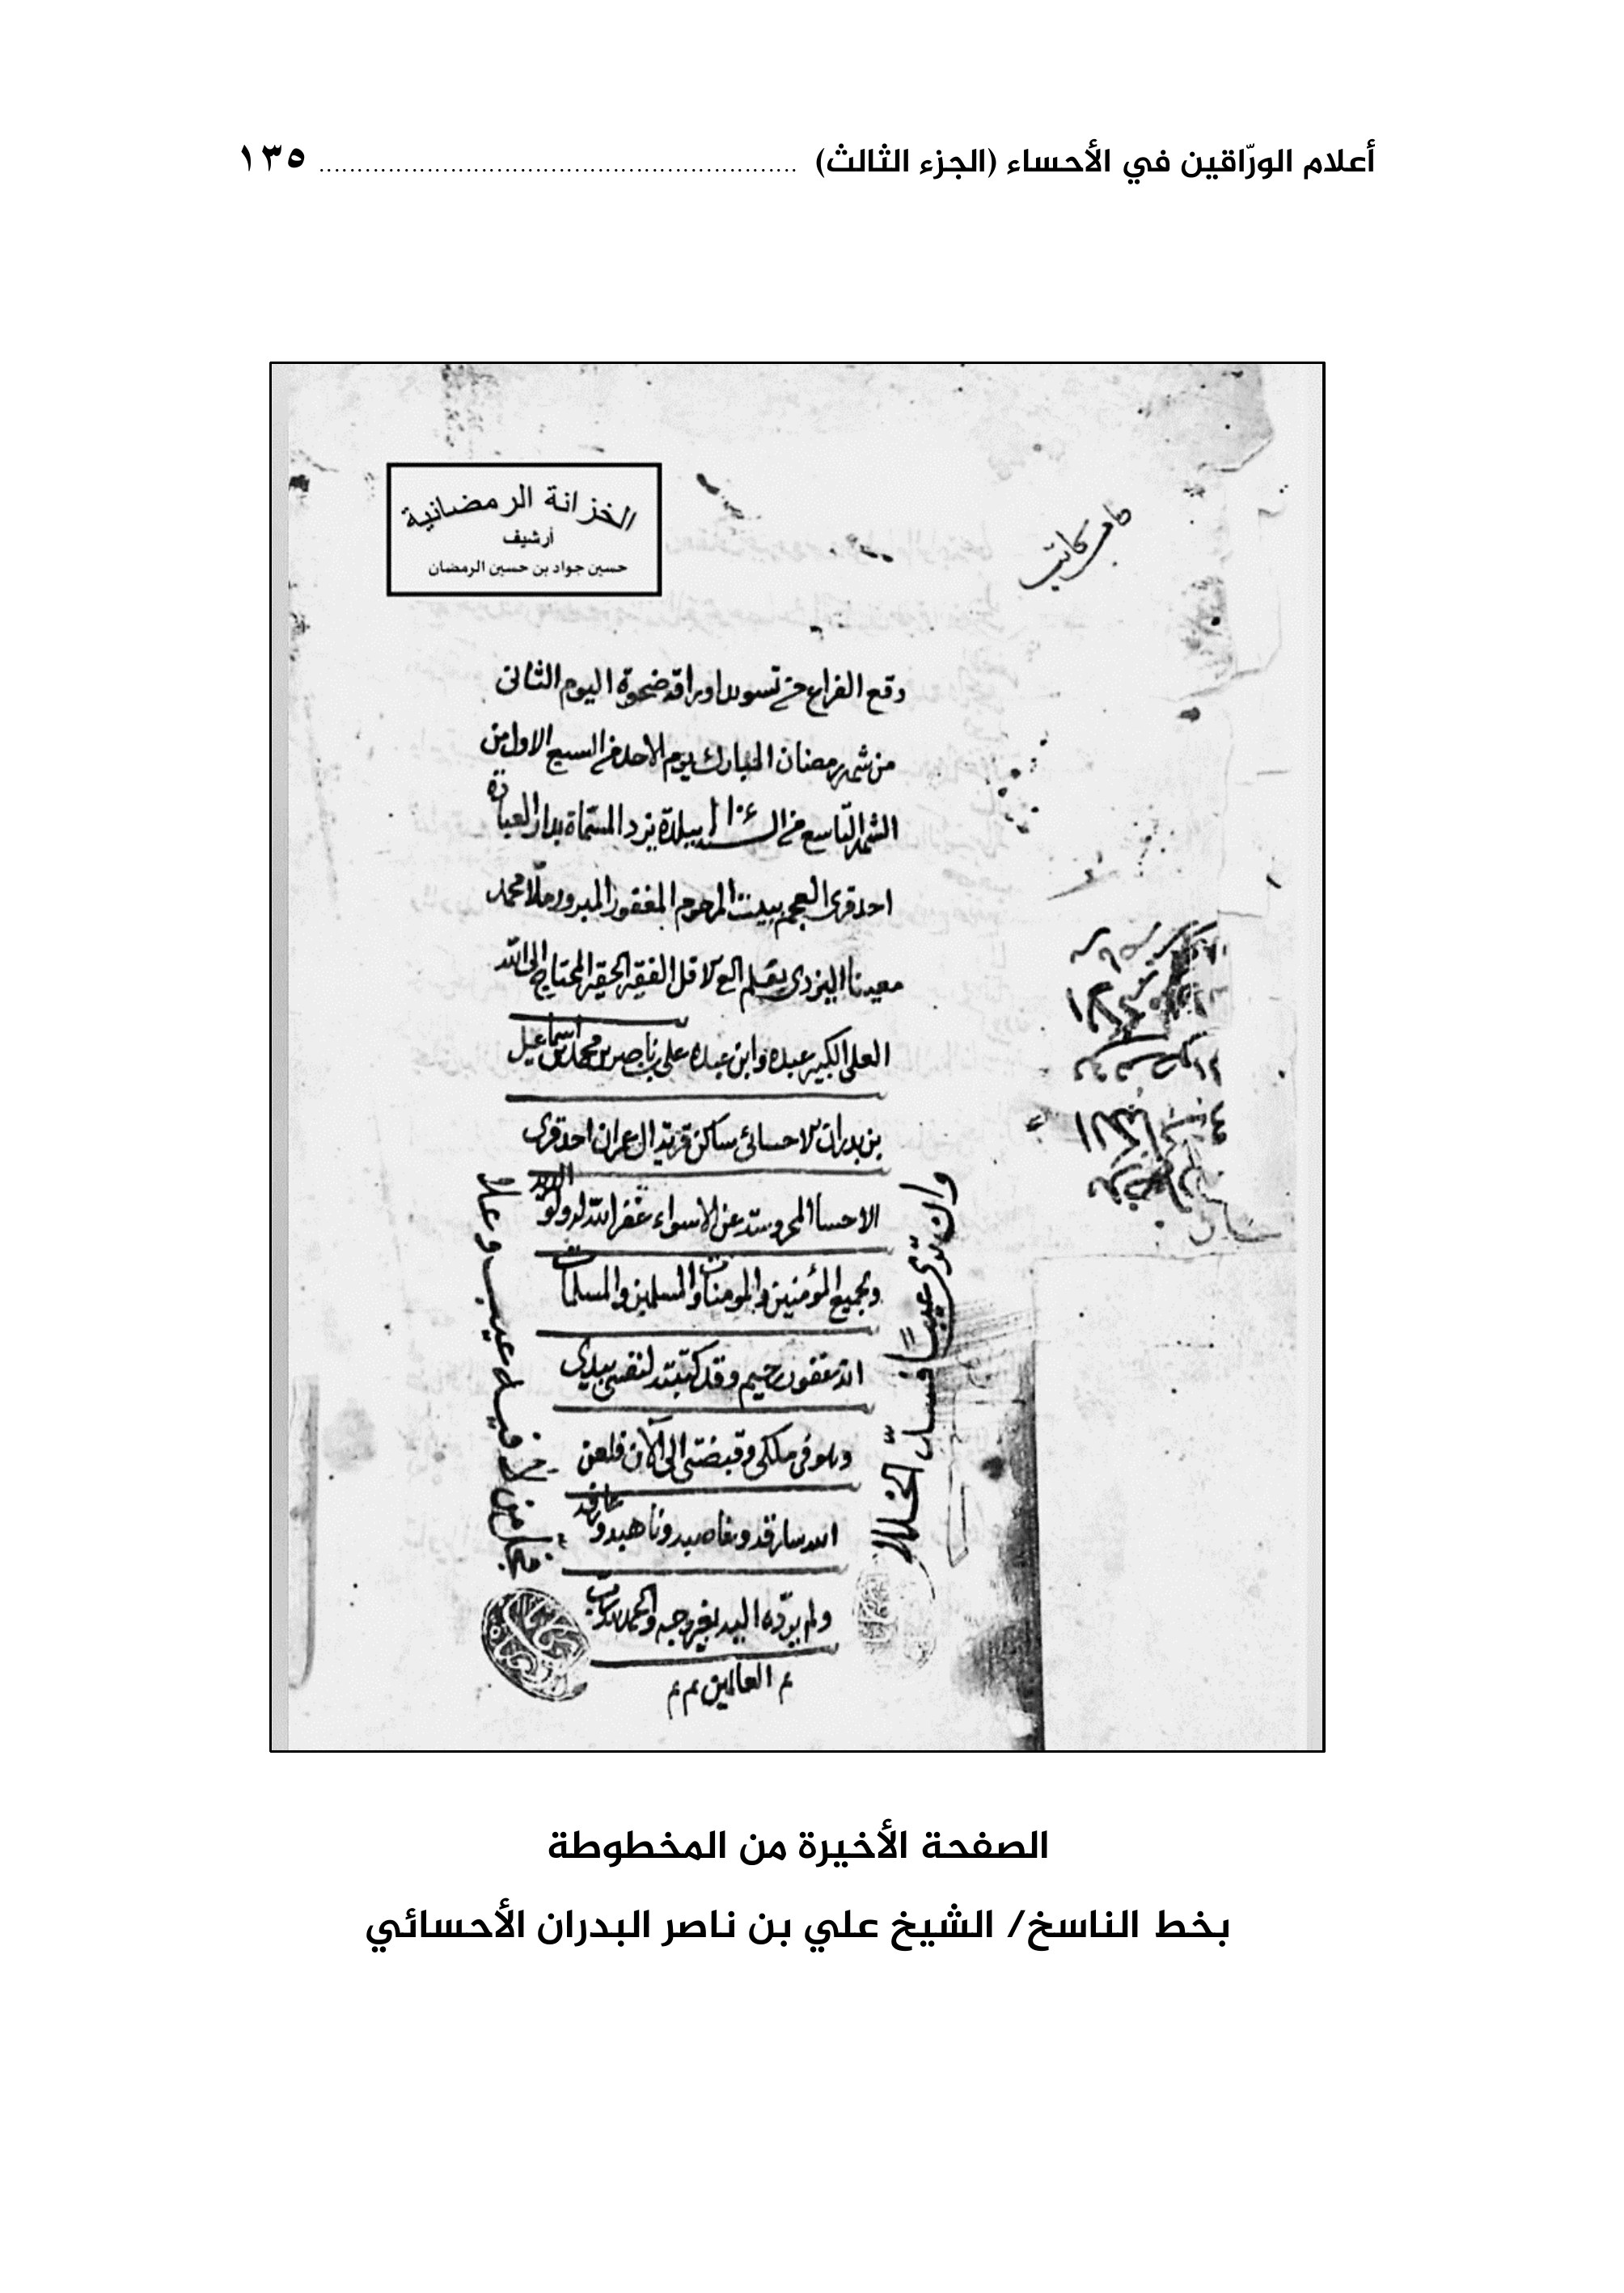 أعلام الورّاقين في الأحساء (الجزء الثالث) ............................................................ ١٣٥
الخزانة الرمضانية
أرشيف
حسين جواد بن حسين الرمضان
وقع الفراغ من تسويد اوراقه ضحوة اليوم الثاني
من شهر رمضان المبارك يوم الاحد في السبع الاول من
الشهر التاسع من السنه ببلدة يزد المسماة بدار العبادة
احد قرى العجم ببيت المرحوم المغفور المبرور ملا محمد
اليزدي بقلم الاقل الفقير الحقير المحتاج الى الله
العلي الكبير عبده وابن عبده علي بن ناصر بن محمد بن اسماعيل
بن بدران الاحسائي ساكن قرية ال عمران احد قرى
الاحسا المحروسة عن الاسواء غفر الله له ولوالديه
ولجميع المؤمنين والمومنات والمسلمين والمسلمات
انه غفور رحيم وقد كتبته لنفسي بيدي
وهو في ملكي وقبضتي الى الآن فلعن
الله سارقه وغاصبه وناهبه
ولم يردّه اليه بغير وجه والحمد لله رب
العالمين م م
وان ترى عيبا فسدّ الخللا
فجل من لا فيه عيب وعلا
الصفحة الأخيرة من المخطوطة
بخط الناسخ/ الشيخ علي بن ناصر البدران الأحسائي